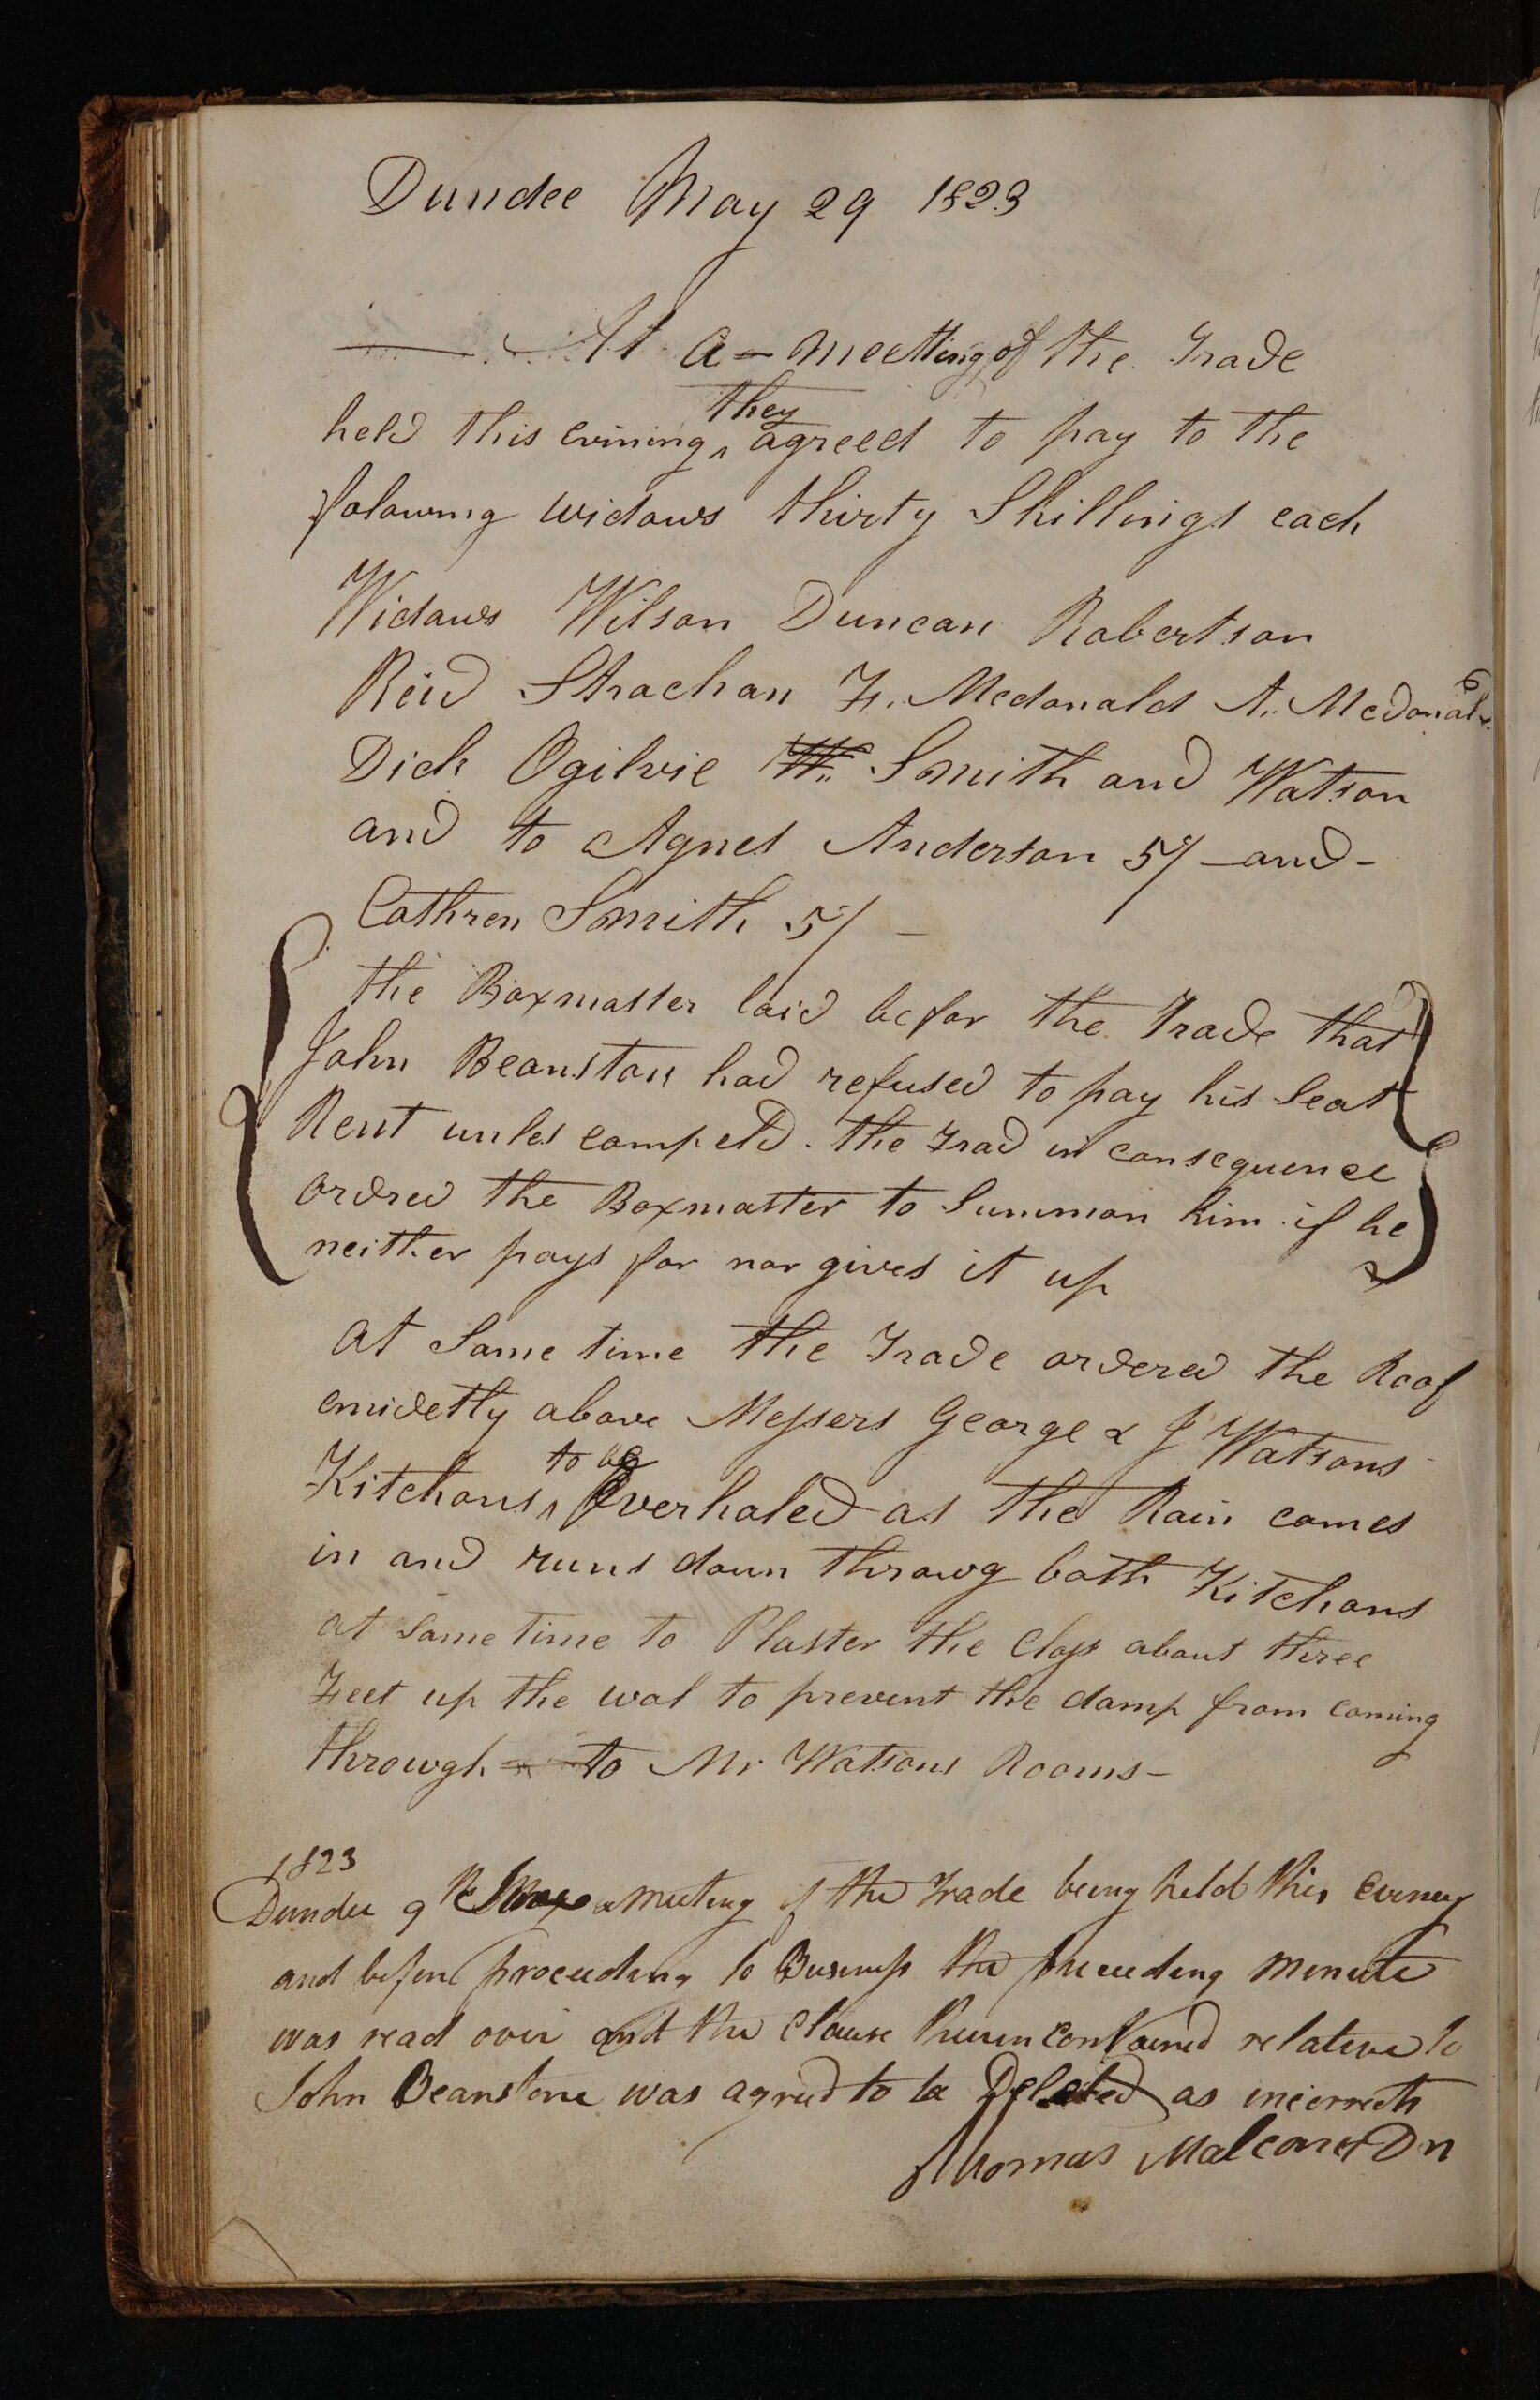 Dundee May 29 1823
At a meetting of the Trade
held this evining they agreed to pay to the
folowing widows thirty Shillings each
Widows Wilson Duncan Robertson
Reid Strachan F. Mcdonald A. McDonald
Dick Ogilvie W. Smith and Watson
and to Agnes Anderson 5/ and
Cathren Smith 5/
the Boxmaster laid befor the Trade that
John Beanston had refused to pay his Seat
Rent unles compeld. the Trad in consequence
ordred the Boxmaster to Summon him if he
neither pays for nor gives it up
at Same time the Trade ordered the Roof
emidetly above Messers George & J Watsons
Kitchons to be Overhaled as the Rain comes
in and runs doun throwg both Kitchons
at Same time to Plaster the Closs about three
Feet up the wal to prevent the damp from coming
throwgh to Mr Watsons Rooms
1823
Dundee 9 a meeting of the Trade being held this evening
and before proceeding to Business the preceeding minute
was read over and the Clause therein contained relative to
John Beanstone was agreed to be Deleted as incorrect
Thomas Dn